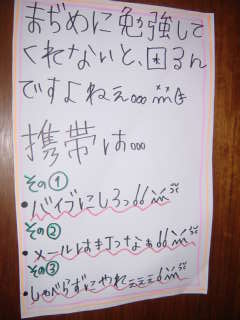 まぢめに勉強して
くれないと、困るん
ですよねぇ。。。
携帯は。。。
その①
・バイブにしろっ
その②
・メールはまじ打つなぁ
その③
・しゃべらずにやれぇぇぇ